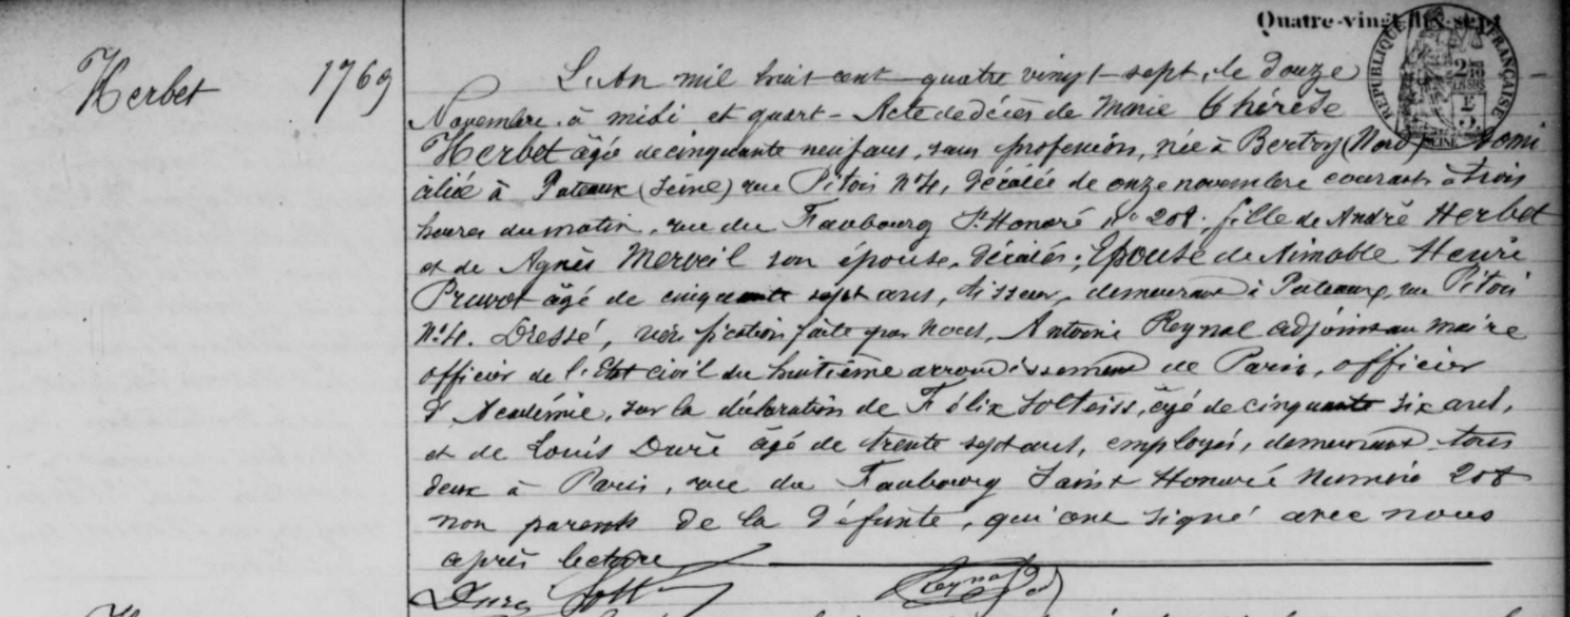 Quatre-vingt-dix-sept
RÉPUBLIQUE FRANÇAISE
Herbet 1769
L'An mil huit cent quatre vingt-sept, le douze
Novembre à midi et quart - Acte de décès de Marie Thérèse
Herbet âgée de cinquante neuf ans, sans profession, née à Bertry (Nord) domi
ciliée à Puteaux (Seine) rue Pitois Nº 4, décédée le onze novembre courant à trois
heures du matin, rue du Faubourg St Honoré nº 208; fille de André Herbet
et de Agnès Merveil son épouse, décédés; Épouse de Aimable Henri
Pruvot âgé de cinquante sept ans, tisseur, demeurant à Puteaux, rue Pitois
Nº 4. Dressé, vérification faite par nous, Antoine Reynal adjoint au maire
officier de l'Etat civil du huitième arrondissement de Paris, officier
d'Académie, sur la déclaration de Félix âgé de cinquante six ans,
et de Louis Duré âgé de trente sept ans, employés, demeurant tous
deux à Paris, rue du Faubourg Saint Honoré numéro 208
non parents de la défunte, qui ont signé avec nous
après lecture
Duré Reynal